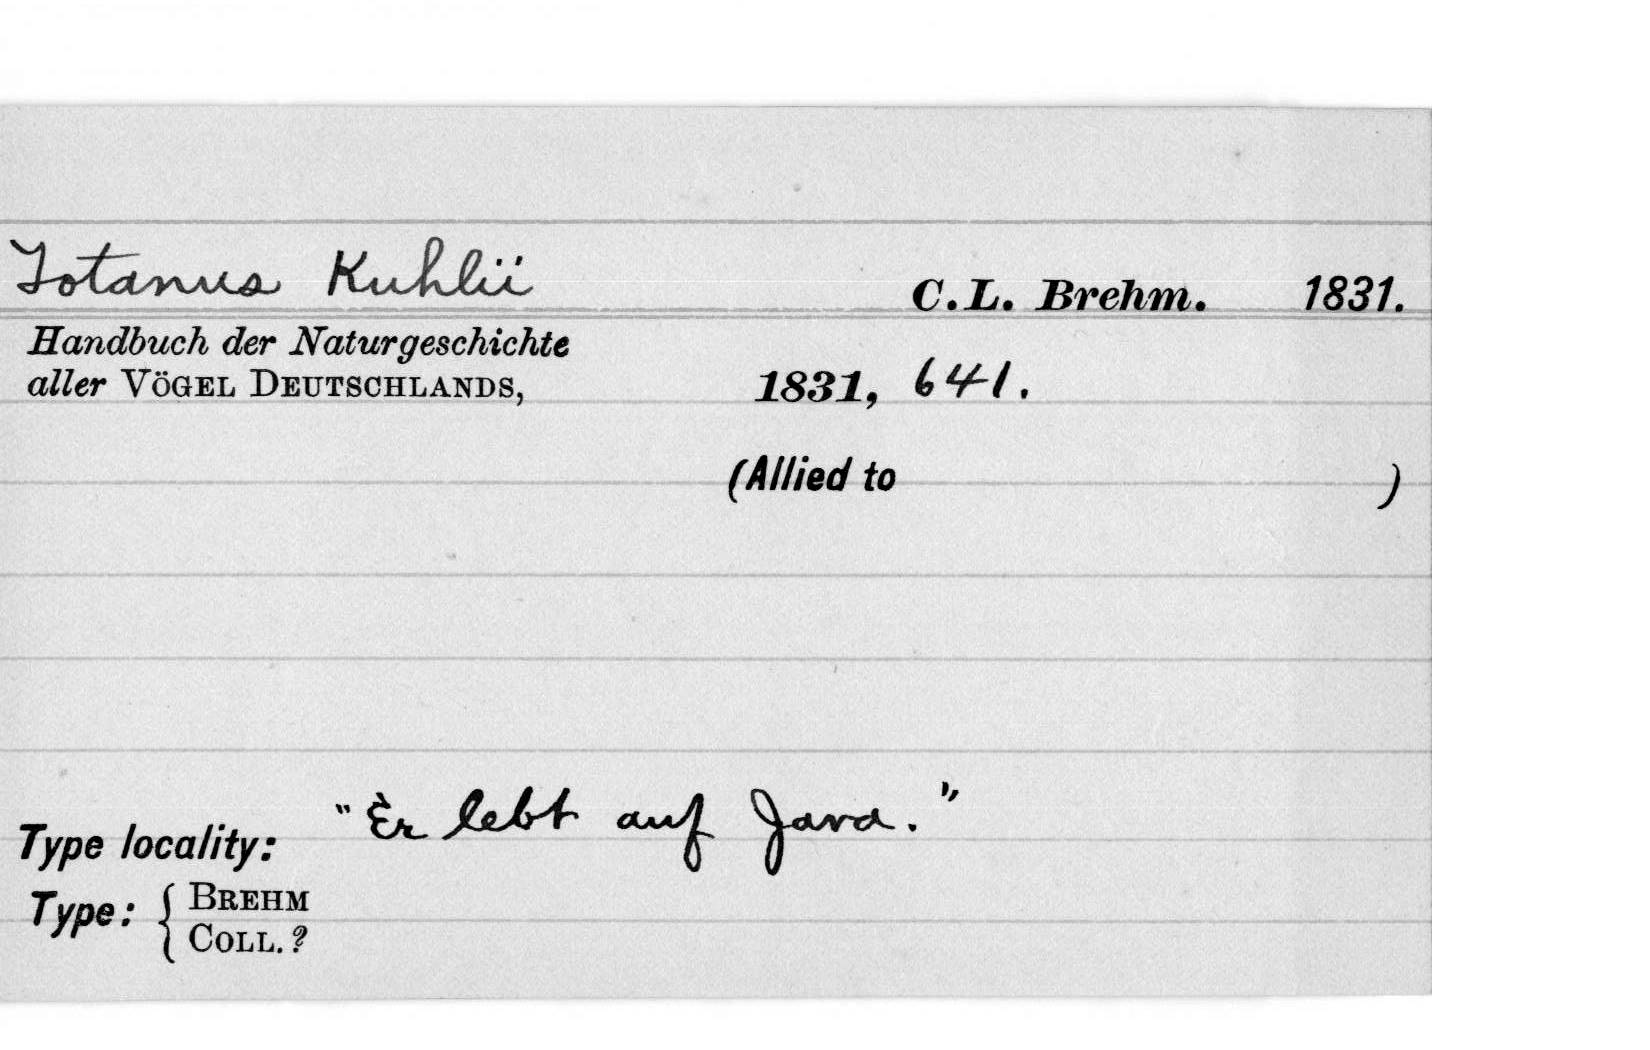 Totanus Kuhlii C.L. Brehm. 1831.
Handbuch der Naturgeschichte
aller VÖGEL DEUTSCHLANDS, 1831, 641.
(Allied to )
Type locality: "Er lebt auf Java."
Type: { BREHM
COLL.?